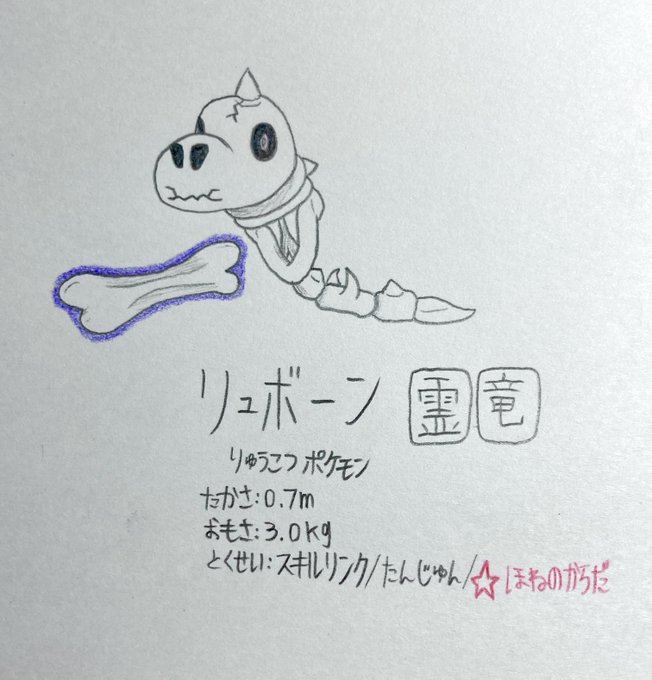 リュボーン 霊 竜
りゅうこつポケモン
たかさ:0.7m
おもさ:3.0kg
とくせい:スキルリンク/たんじゅん/☆ほねのからだ